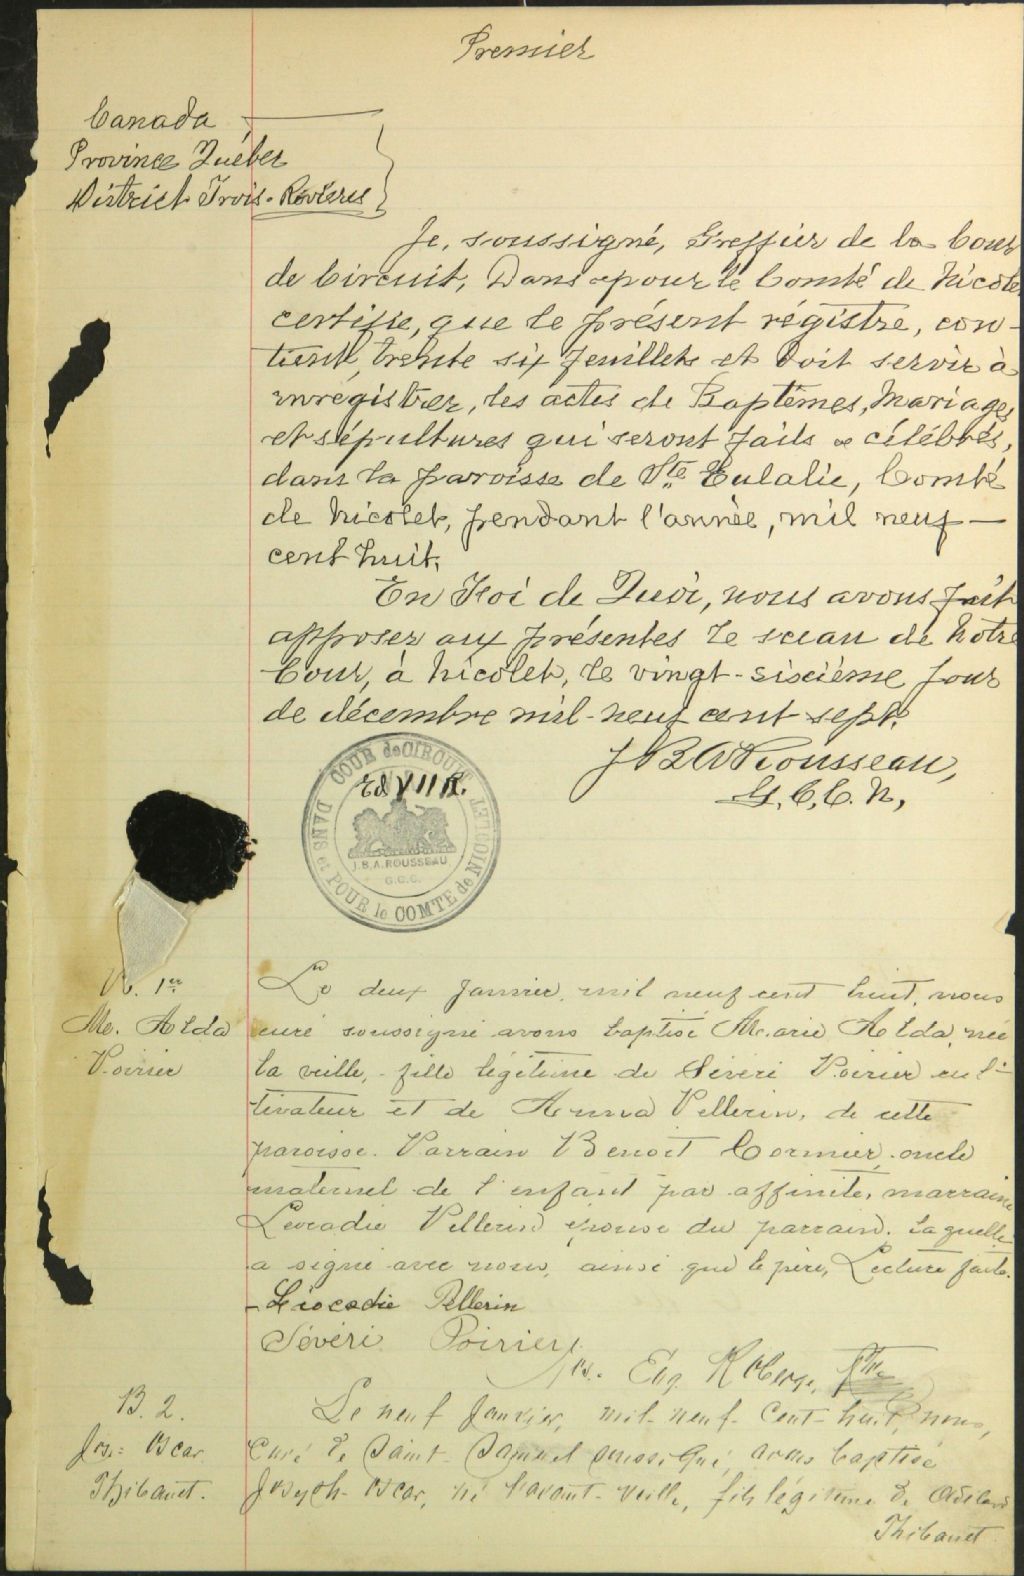 Premier
Canada
Province Québec
District Trois-Rivières
Je, soussigné, Greffier de la Cour
de Circuit, Dans et pour le Comté de Nicolet
certifie, que le présent régistre, con-
tient, trente six feuillets et doit servir à
enrégistrer, les actes de Baptêmes, Mariages
et sépultures qui seront faits et célébrés,
dans la paroisse de Ste Eulalie, Comté
de Nicolet, pendant l'année, mil neuf —
cent huit.
En Foi de Quoi, nous avons fait
apposer aux présentes le sceau de Notre
Cour, à Nicolet, le vingt-sixième jour
de décembre mil-neuf cent sept.
J B A Rousseau,
G. C. C. N,
COUR de CIRCUIT
DANS et POUR le COMTE de NICOLET
J.B.A. ROUSSEAU
G.C.C.
B. 1er
M. Alda
Poirier
Le deux janvier, mil neuf cent huit, nous
curé soussigné avons baptisé Marie Alda, née
la veille, fille légitime de Séveré Poirier cul-
tivateur et de Anna Pellerin, de cette
paroisse. Parrain Benoit Cormier, oncle
maternel de l'enfant par affinité, marraine
Léocadie Pellerin épouse du parrain, laquelle
a signé avec nous, ainsi que le père, Lecture faite.
- Léocadie Pellerin
Sévéri Poirier
Jos. Eug. Roberge, Ptre
B. 2.
Jos: Oscar
Thibault.
Le neuf Janvier, mil-neuf-cent-huit, nous,
Curé de Saint-Samuel soussigné, avons baptisé
Joseph-Oscar, né l'avant-veille, fils légitime de Adélard
Thibault